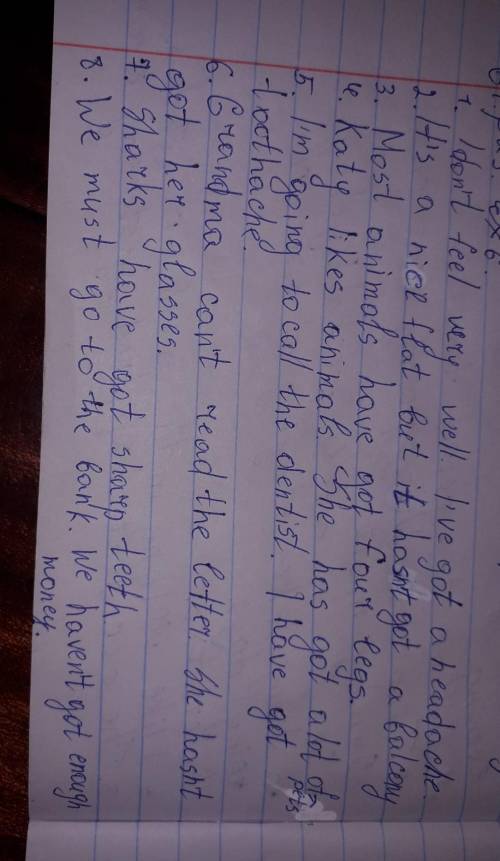 ex 6.
1. I don't feel very well. I've got a headache.
2. It's a nice flat but it hasn't got a balcony
3. Most animals have got four legs.
4. Katy likes animals. She has got a lot of
pets
5. I'm going to call the dentist. I have got
toothache.
6. Grandma can't read the letter. She hasn't
got her glasses.
7. Sharks have got sharp teeth.
8. We must go to the bank. We haven't got enough
money.